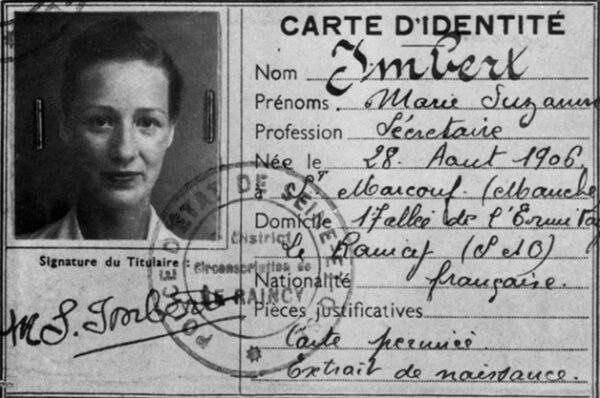 CARTE D'IDENTITÉ
Nom Imbert
Prénoms Marie Suzanne
Profession Sécretaire
Née le 28. Aout 1906.
à St Marcouf. (Manche
Domicile 17 allée de l'Ermitag
Le Raincy (S&O)
Nationalité française.
Pièces justificatives
Carte permicé
Extrait de naissance.
Signature du Titulaire :
M S. Imbert
POLICE D'ETAT DE SEINE
District
Circonscription de
LE RAINCY